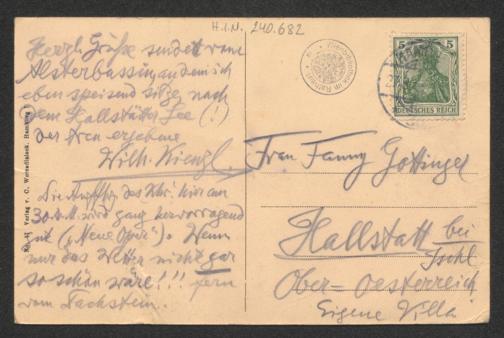 H.I.N. 240.682
Herzl. Grüße sendet vom
Alsterbassin, an dem ich
eben speisend sitze, nach
dem Hallstätter See (!)
der treu ergebene
Wilh. Kienzl.
Die Aufführg des Khr. hier am
30. d. M. wird ganz hervorragend
gut ("Neue Oper"). Wenn
nur das Wetter nicht gar
so schön wäre!!! fern
vom Dachstein.
Verlag v. C. Worzedialeck, Hamburg
Wiener Stadtbibliothek
5 5
DEUTSCHES REICH
Frau Fanny Göttinger
Hallstatt bei
Ischl
Ober=Oesterreich
Eigene Villa